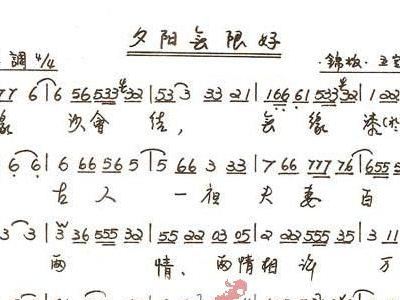 夕阳無限好
調 4/4
77 6 | 6 56 533 32 | 53 3 33 21 | 166 61 533 32 | 1 22
緣 會 结, 無 緣
6 6 | 6 66 565 5 | 5 66 3 33 | 7 66 777 76 | 655 5
古 人 一 夫 妻 百
3 3 | 3 36 555 32 | 55 22 03 05 | 2 22 555 35 | 3 11
两 情, 两 情 相 万